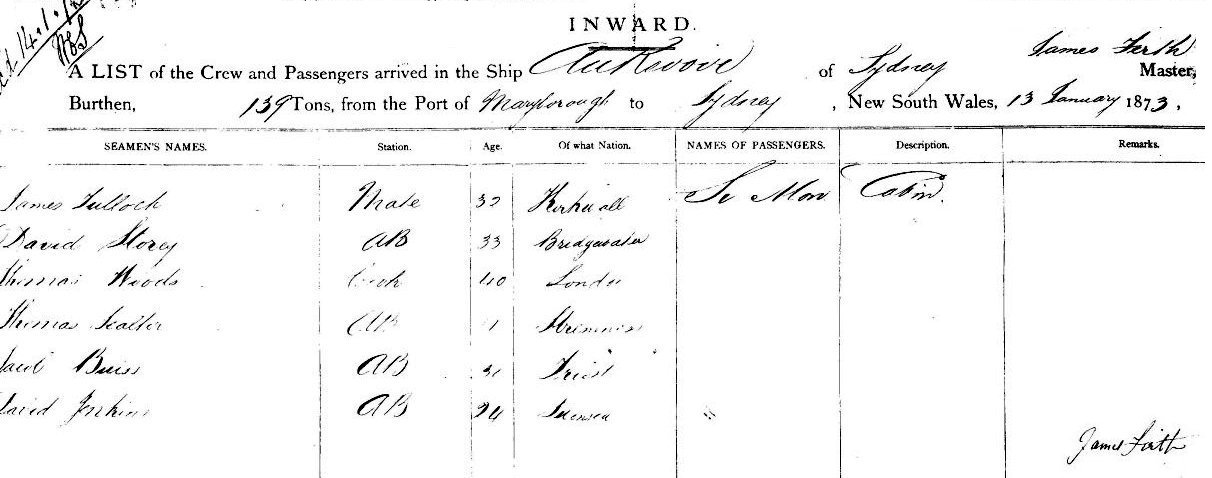 14.1.
INWARD.
A LIST of the Crew and Passengers arrived in the Ship of Sydney James Firth Master,
Burthen, 139 Tons, from the Port of Maryborough to Sydney, New South Wales, 13 January 1873,
SEAMEN'S NAMES. Station. Age. Of what Nation. NAMES OF PASSENGERS. Description. Remarks.
James Tulloch Mate 32 Kirkwall Cabin.
David Storey AB 33 Bridgewater
Thomas Woods Cook 40 London
Thomas AB
AB 31 Triest
David Jenkins AB 24 Swansea "
James Firth